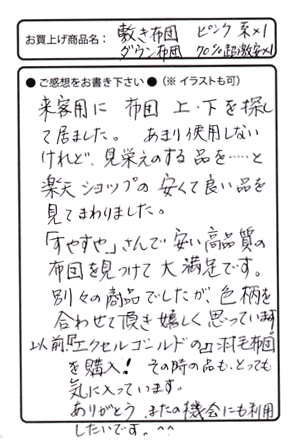 お買上げ商品名： 敷き布団 ピンク系×1
ダウン布団 70%超激安×1
● ご感想をお書き下さい ●（※ イラストも可）
来客用に 布団 上・下を探し
て居ました。 あまり使用しない
けれど、見栄えのする品を……と
楽天ショップの 安くて良い品を
見てまわりました。
「すやすや」さんで 安い高品質の
布団を見つけて 大満足です。
別々の商品でしたが、色柄を
合わせて頂き嬉しく思っています
以前『エクセルゴールドの』羽毛布団
を購入! その時の品も、とっても
気に入っています。
ありがとう、またの機会にも利用
したいです。^^